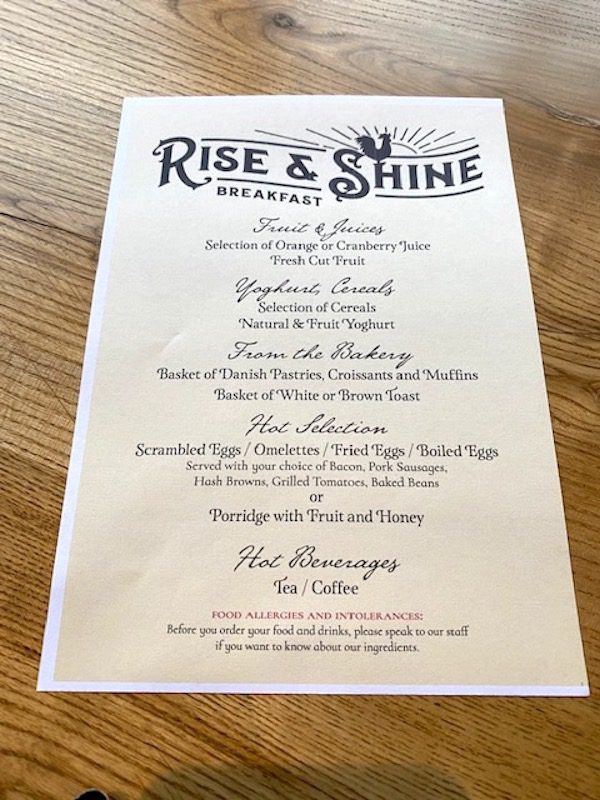 RISE & SHINE
BREAKFAST
Fruit & Juices
Selection of Orange or Cranberry Juice
Fresh Cut Fruit
Yoghurt, Cereals
Selection of Cereals
Natural & Fruit Yoghurt
From the Bakery
Basket of Danish Pastries, Croissants and Muffins
Basket of White or Brown Toast
Hot Selection
Scrambled Eggs / Omelettes / Fried Eggs / Boiled Eggs
Served with your choice of Bacon, Pork Sausages,
Hash Browns, Grilled Tomatoes, Baked Beans
or
Porridge with Fruit and Honey
Hot Beverages
Tea / Coffee
FOOD ALLERGIES AND INTOLERANCES:
Before you order your food and drinks, please speak to our staff
if you want to know about our ingredients.